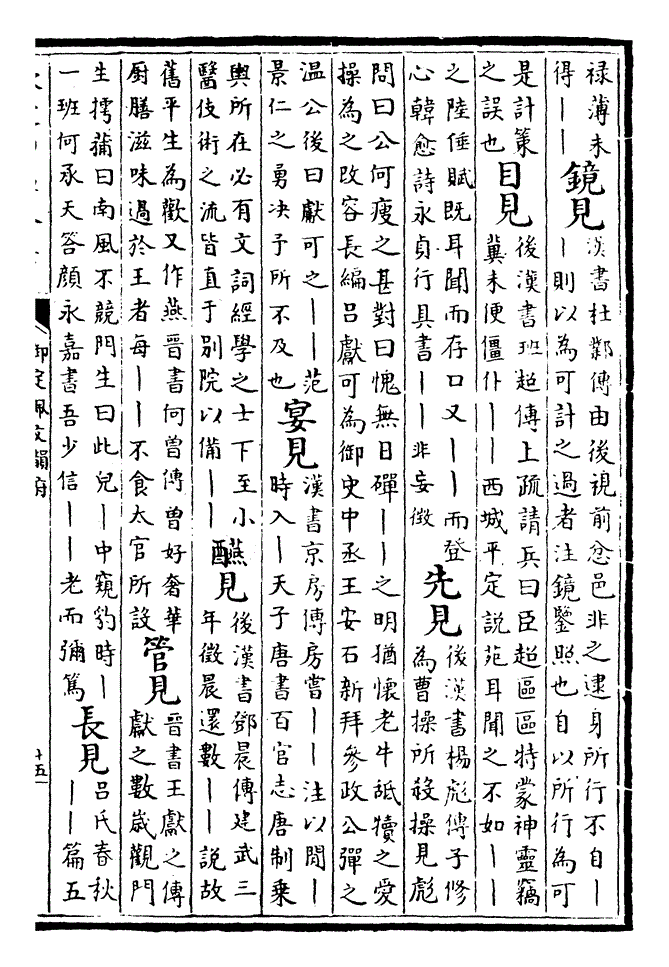 祿薄未
得丨丨
鏡見
漢書杜鄴傳由後視前忿邑非之逮身所行不自丨
丨則以為可計之過者注鏡鑒照也自以所行為可
是計策
之誤也
目見
後漢書班超傳上疏請兵曰臣超區區特蒙神靈竊
冀未便僵仆丨丨西城平定説苑耳聞之不如丨丨
之陸倕賦既耳聞而存口又丨丨而登
心韓愈詩永貞行具書丨丨非妄徵
先見
後漢書楊彪傳子修
為曹操所殺操見彪
問曰公何瘦之甚對曰愧無日磾丨丨之明猶懷老牛舐犢之愛
操為之改容長編吕獻可為御史中丞王安石新拜參政公彈之
温公後曰獻可之丨丨范
景仁之勇决予所不及也
宴見
漢書京房傳房嘗丨丨注以閒丨
時入丨天子唐書百官志唐制乗
輿所在必有文詞經學之士下至小
醫伎術之流皆直于别院以備丨丨
醼見
後漢書鄧晨傳建武三
年徵晨還數丨丨説故
舊平生為歡又作燕晉書何曾傳曾好奢華
厨膳滋味過於王者每丨丨不食太官所設
管見
晉書王獻之傳
獻之數嵗觀門
生摴蒱曰南風不競門生曰此兒丨中窺豹時丨
一班何承天答顔永嘉書吾少信丨丨老而彌篤
長見
吕氏春秋
丨丨篇五
御定佩文韻府
十五